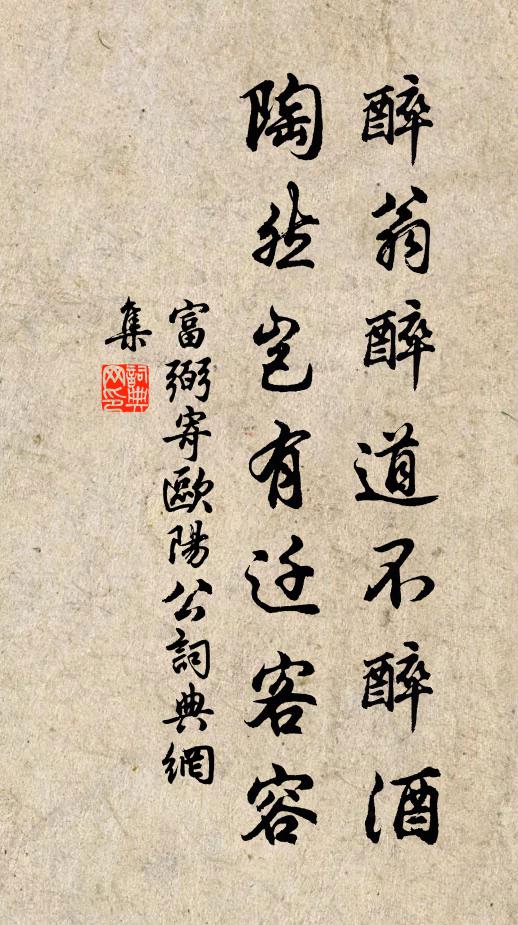 醉翁醉道不醉酒
陶然岂有迁客容
富弼寄歐陽公詞典網
集
詞典
网印